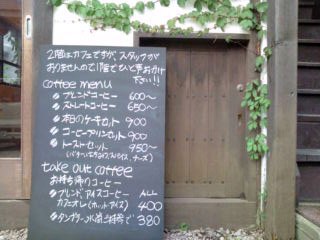 2階はカフェですが、スタッフが
おりませんので、1階でひと声おかけ
下さい!!
coffee menu
ブレンドコーヒー 600〜
ストレートコーヒー 650〜
本日のケーキセット 900
コーヒープリンセット 900
トーストセット 950〜
チーズ)
take out coffee
お持ち帰りコーヒー
ブレンド、アイスコーヒー ALL
カフェオレ(ホット、アイス) 400
380